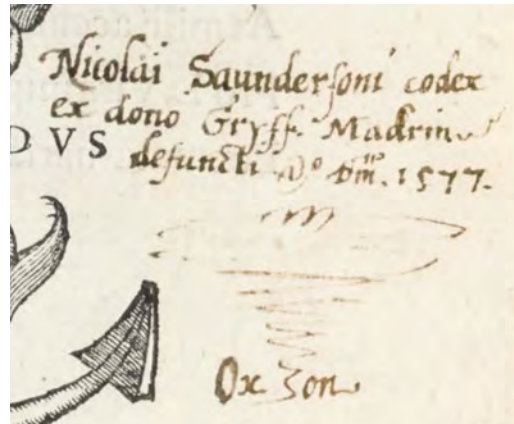 Nicolai Saundersoni codex
ex dono Gryff. Madrin
DVS
defuncti Aº Dm̃. 1577.
Oxon